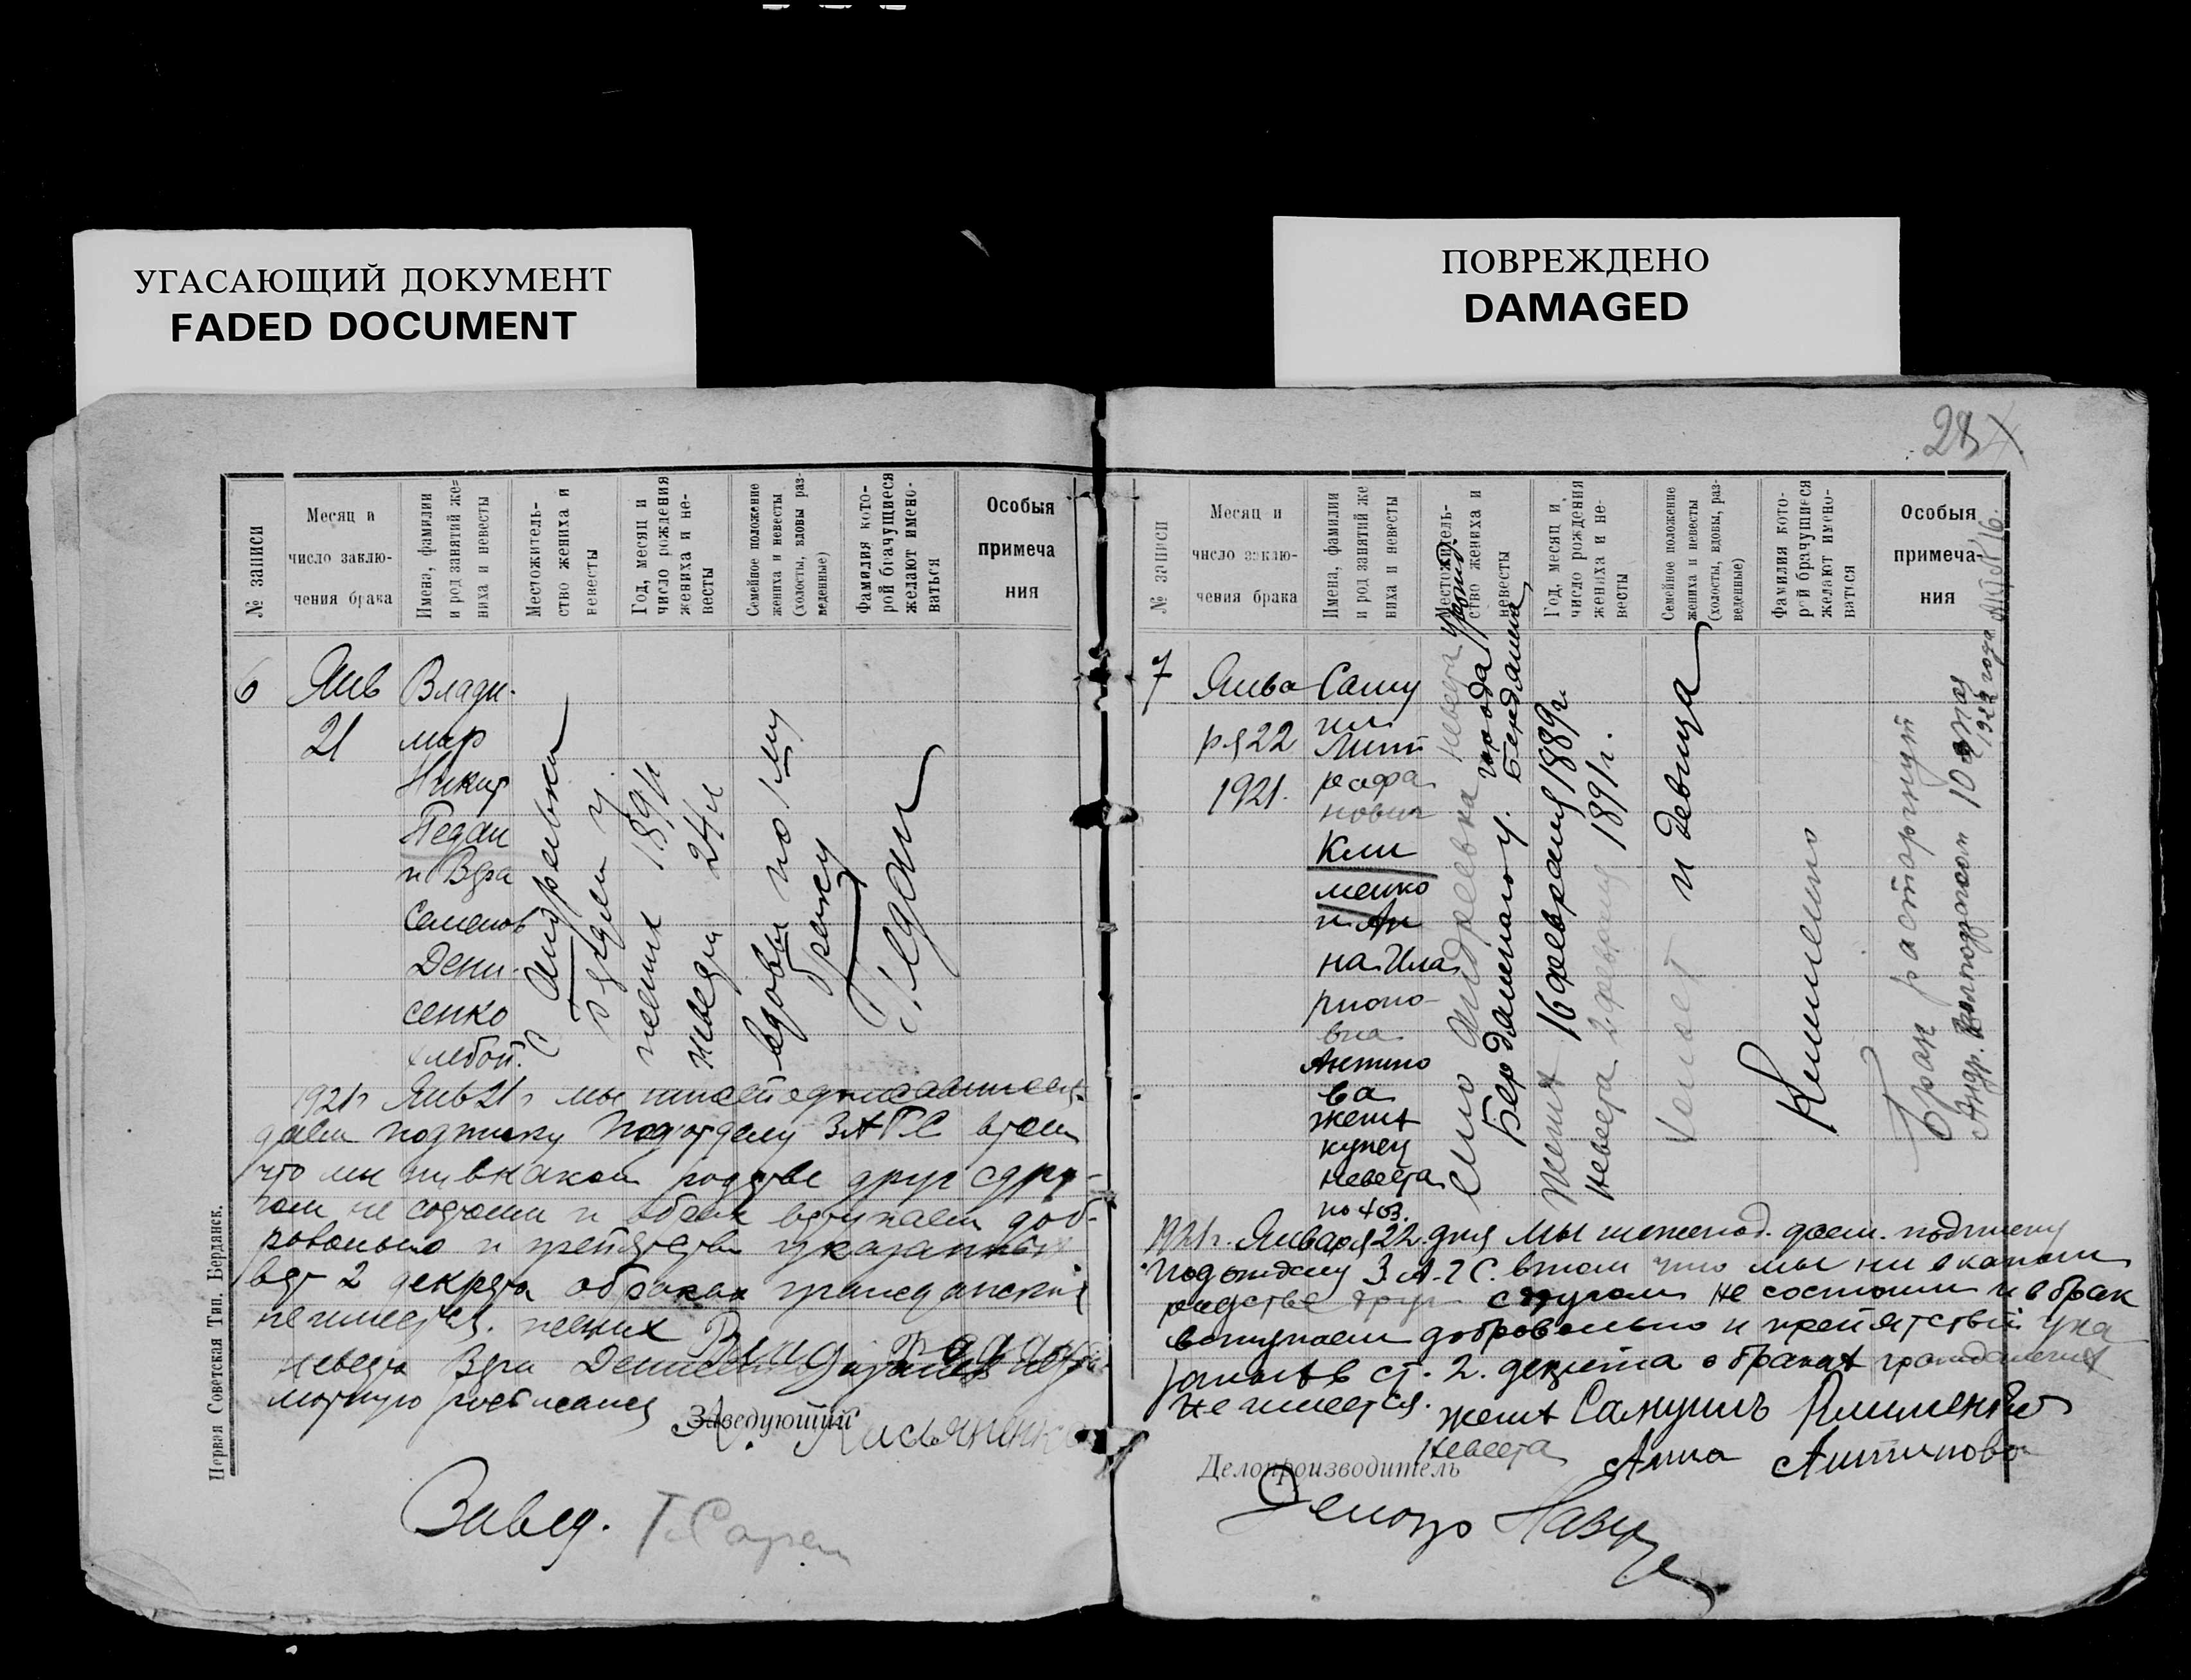 УГАСАЮЩИЙ ДОКУМЕНТ
FADED DOCUMENT
ПОВРЕЖДЕНО
DAMAGED
28
№ записи
Месяц и
число заклю-
чения брака
Имена, фамилии
и род занятий же-
ниха и невесты
Местожитель-
ство жениха и
невесты
Год, месяц и
число рождения
жениха и не-
весты
Семейное положение
жениха и невесты
(холосты, вдовы раз-
веденные)
Фамилия кото-
рой брачущиеся
желают имено-
ваться
Особыя
примеча
ния
6
Янв
21
Влади-
мир
Никит
Педан
и Вера
Семенов
Дени-
сенко
хлебоп.
с Андреевки
жених 1891
невеста 24 л
вдовы по 1му
браку
Педан
1921 г Янв 21
даем подписку Подотделу ЗАГС втом
что мы ни в каком родстве друг сдру-
гом не состоим и вбрак вступаем доб-
ровольно и препятствий указанных
вст 2 декрета обраках гражданских
не имеется. жених Влад Педан
невеста Вера Денисенко
мотную росписался
Заведующий
Завед.
Первая Советская Тип. Бердянск.
№ записи
Месяц и
число заклю-
чения брака
Имена, фамилии
и род занятий же
ниха и невесты
Местожитель-
ство жениха и
невесты
Год, месяц и
число рождения
жениха и не-
весты
Семейное положение
жениха и невесты
(холосты, вдовы, раз-
веденные)
Фамилия кото-
рой брачущиеся
желают имено-
ваться
Особыя
примеча-
ния
7
Янва
ря 22
1921.
Саму
ил
Мит
рофа
нович
Кли
менко
и Ан
на Ила
рионо-
вна
Антипо
ва
жених
купец
невеста
по хоз.
село Андреевка невеста
Бердянского у. города
Бердянска
жених 16 февраля 1889 г.
невеста 2 февраля 1891 г.
холост и девица
Клименко
Брак расторгнут
Андр. 10 мая
1922 года акт № 16.
1921 г. Января 22 дня Мы нижепод. даем. подписку
подотделу З.А.Г.С. втом что мы ни вкаком
родстве друг сдругом не состоим и вбрак
вступаем добровольно и препятствий ука
занных в ст. 2. декрета о браках гражданских
не имеется. жених Самуил Клименко
невеста Анна Антипова
Делопроизводитель